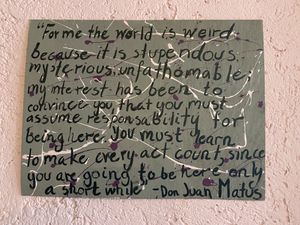 "For me the world is weird
because it is stupendous,
mysterious, unfathomable;
my interest has been to
convince you that you must
assume responsability for
being here. You must learn
to make every act count, since
you are going to be here only
a short while" -Don Juan Matus